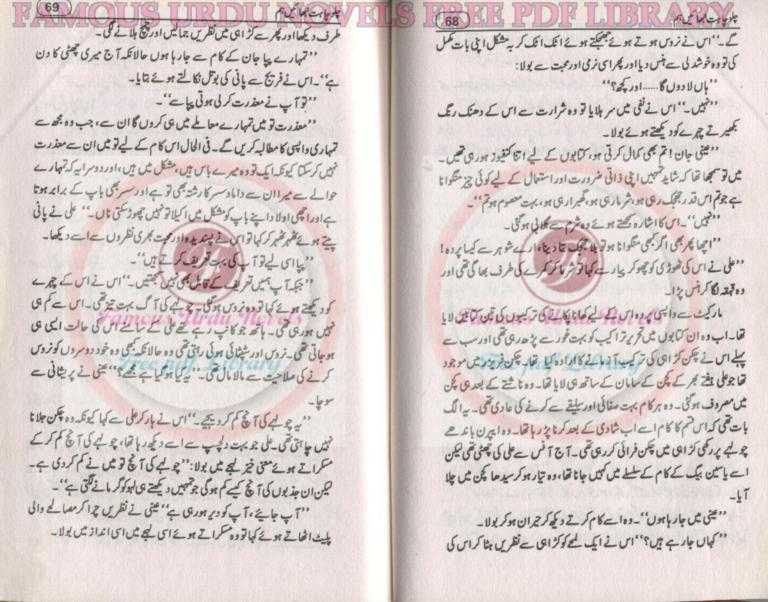 FAMOUS URDU NOVELS FREE PDF LIBRARY
68
چلو چاہت نبھائیں ہم
گے۔“ اس نے نروس ہوتے ہوئے جھجکتے ہوئے اٹک اٹک کر بہ مشکل اپنی بات مکمل
کی تو وہ خوشدلی سے ہنس دیا اور پھر اسی نرمی اور محبت سے بولا:
”ہاں لا دوں گا...... اور کچھ؟“
”نہیں۔“ اس نے نفی میں سر ہلایا تو وہ شرارت سے اس کے دھنک رنگ
بکھیرتے چہرے کو دیکھتے ہوئے بولا۔
”عینی جان! تم بھی کمال کرتی ہو، کتابوں کے لیے اتنا کنفیوز ہو رہی تھیں۔
میں تو سمجھا تھا کہ شاید تمہیں اپنی ذاتی ضرورت اور استعمال کے لیے کوئی چیز منگوانا
ہے جو تم اس قدر جھجک رہی ہو، شرما رہی ہو، گھبرا رہی ہو، بہت معصوم ہو تم۔“
”نہیں“۔ اس کا اشارہ سمجھتے ہوئے وہ شرم سے لال ہو گئی۔
”اچھا پھر بھی اگر کبھی منگوانا ہو تو بلا جھجک بتا دینا ہمارے شوہر سے کیسا پردہ!
“ علی نے اس کی ٹھوڑی کو چھو کر پیار سے کہا تو شرما کر کمرے کی طرف بھاگی تھی اور
وہ قہقہہ لگا کر ہنس پڑا۔
مارکیٹ سے واپسی پر وہ اس کے لیے کھانا پکانے کی ترکیبوں کی تین کتابیں لایا
تھا۔ اب وہ ان کتابوں میں تحریر تراکیب کو بہت غور سے پڑھ رہی تھی اور سب سے
پہلے اس نے چکن کڑاہی کی ترکیب آزمانے کا ارادہ کیا تھا۔ چکن فریزر میں موجود
تھا جو علی ہفتے بھر کے کچن کے سامان کے ساتھ ہی لایا تھا۔ وہ ناشتے کے بعد ہی چکن
میں مصروف ہو گئی۔ وہ ہر کام بہت صفائی اور سلیقے سے کرنے کی عادی تھی۔ یہ الگ
بات تھی کہ اس قسم کا کام اسے اب شادی کے بعد کرنا پڑ رہا تھا۔ وہ ایپرن باندھے
چولہے پر رکھی کڑاہی میں چکن فرائی کر رہی تھی۔ آج آفس سے علی کی چھٹی تھی لیکن
اسے یاسین بیگ کے کام کے سلسلے میں کہیں جانا تھا، وہ تیار ہو کر سیدھا کچن میں چلا
آیا۔
”عینی میں جا رہا ہوں“۔ وہ اسے کام کرتے دیکھ کر حیران ہو کر بولا۔
”کہاں جا رہے ہیں؟“ اس نے ایک لمحے کو کڑاہی سے نظریں ہٹا کر اس کی
69
چلو چاہت نبھائیں ہم
طرف دیکھا اور پھر سے کڑاہی میں نظریں جمائیں اور چمچ ہلانے لگی۔
”تمہارے پپا جان کے کام سے جا رہا ہوں حالانکہ آج میری چھٹی کا دن
ہے“۔ اس نے فریج سے پانی کی بوتل نکالتے ہوئے بتایا۔
”تو آپ نے معذرت کر لی ہوتی پپا سے“۔
”معذرت تو میں تمہارے معاملے میں ہی کروں گا ان سے، جب وہ مجھ سے
تمہاری واپسی کا مطالبہ کریں گے۔ فی الحال اس کام کے لیے تو میں ان سے معذرت
نہیں کر سکتا کیونکہ ایک تو وہ میرے باس ہیں، مشکل میں ہیں، اور دوسرا یہ کہ تمہارے
حوالے سے میرا ان سے داماد سسر کا رشتہ بھی تو ہے اور سسر بھی باپ کے برابر ہوتا
ہے اور اچھی اولاد اپنے باپ کو مشکل میں اکیلا تو نہیں چھوڑ سکتی ناں۔“ علی نے پانی
پیتے ہوئے ٹھہر ٹھہر کر کہا تو اس نے پسندیدہ اور محبت بھری نظروں سے اسے دیکھا۔
”پپا اسی لیے تو آپ کی بہت تعریف کرتے ہیں“۔
”جبکہ آپ ہمیں تعریف کے قابل بھی نہیں سمجھتیں۔“ اس نے اس کے چہرے
کو دیکھتے ہوئے کہا تو وہ نروس ہو گئی۔ چولہے کی آگ بہت تیز تھی۔ اس سے کم ہی
نہیں ہو رہی تھی۔ ہاتھ جو کانپ رہے تھے علی کے سامنے اس کی حالت ایسی ہی
ہو جاتی تھی۔ نروس اور سٹپٹائی ہوئی رہتی تھی وہ حالانکہ کبھی وہ خود دوسروں کو نروس
کرنے کی صلاحیت سے مالا مال تھی۔ ”یہ کیا ہو گیا ہے مجھے؟“ عینی نے پریشانی سے
سوچا۔
”یہ چولہے کی آنچ کم کر دیجیے۔“ اس نے ہار کر علی سے کہا کیونکہ وہ چکن جلانا
نہیں چاہتی تھی۔ علی جو بہت دلچسپ سے اسے دیکھ رہا تھا، چولہے کی آنچ کم کر کے
مسکراتے ہوئے معنی خیز لہجے میں بولا: ”چولہے کی آنچ تو میں نے کم کر دی ہے۔
لیکن ان جذبوں کی آنچ کیسے کم ہو گی جو تمہیں دیکھتے ہی لہو کو گرمانے لگتی ہے“۔
”آپ جایئے، آپ کو دیر ہو رہی ہے“ عینی نے نظریں چرا کر مصالحے والی
پلیٹ اٹھاتے ہوئے کہا تو وہ مسکراتے ہوئے اسی لہجے میں اسی انداز میں بولا۔
Famous Urdu Novels
Free pdf Library